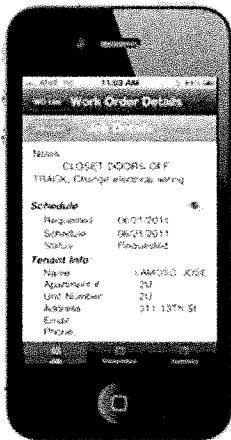 11:03 AM
Work Order Details
Job Details
Notes
CLOSET DOORS OFF
TRACK, Change electrical wiring
Schedule
Requested 06/21/2011
Schedule 06/21/2011
Status Requested
Tenant Info
Name LAMOSO, JOSE
Apartment # 2U
Unit Number 2U
Address 311 13TH St
Email
Phone